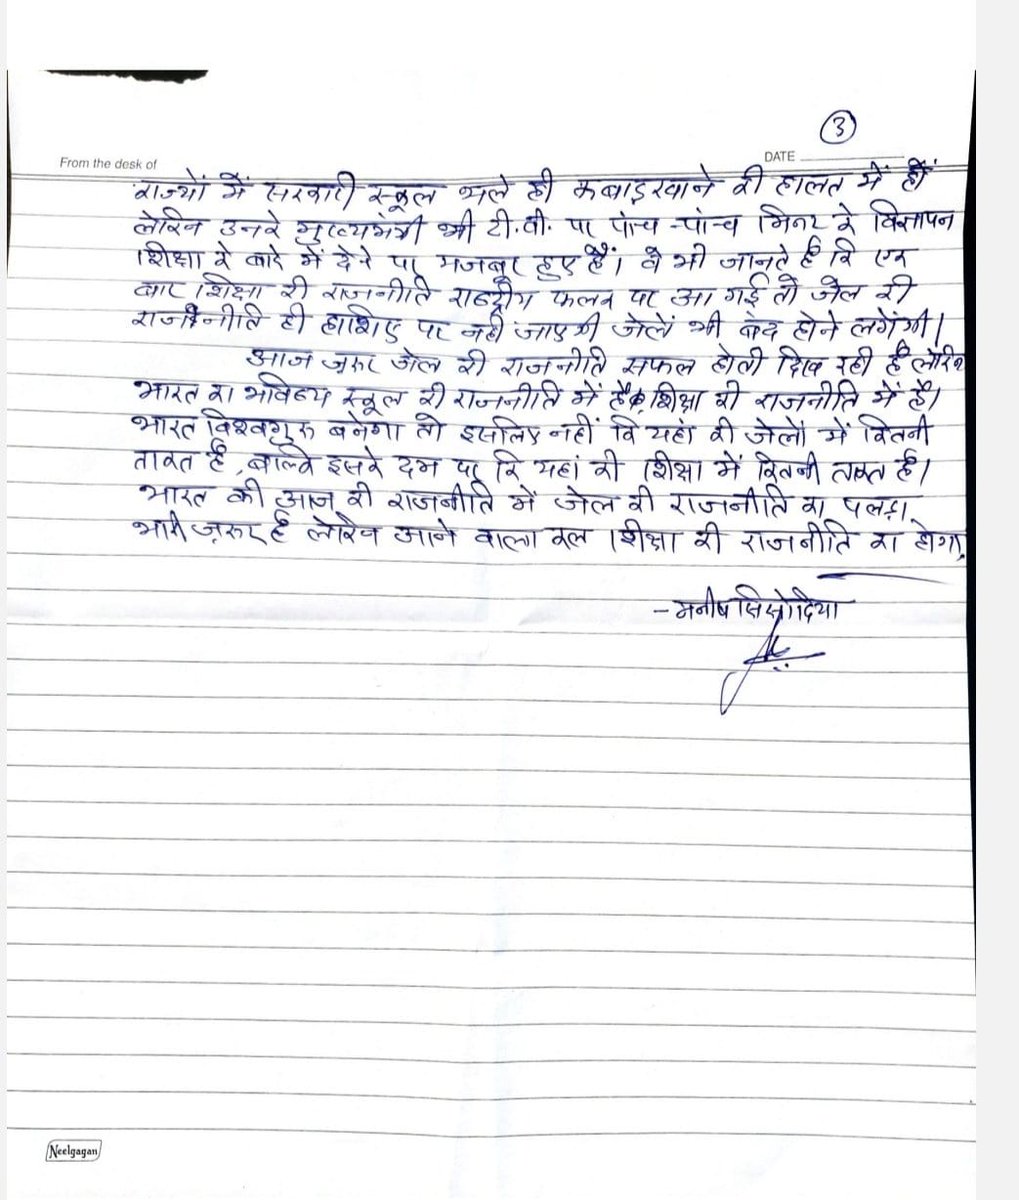 3
From the desk of
DATE
राज्यों में सरकारी स्कूल भले ही कबाड़खाने की हालत में हों
लेकिन उनके मुख्यमंत्री भी टी.वी. पर पांच-पांच मिनट के विज्ञापन
शिक्षा के बारे में देने पर मजबूर हुए हैं। वे भी जानते हैं कि एक
बार शिक्षा की राजनीति राष्ट्रीय फलक पर आ गई तो जेल की
राजनीति ही हाशिए पर नहीं जाएगी जेलें भी बंद होने लगेंगी।
आज ज़रूर जेल की राजनीति सफल होती दिख रही है लेकिन
भारत का भविष्य स्कूल की राजनीति में है, शिक्षा की राजनीति में है।
भारत विश्वगुरु बनेगा तो इसलिए नहीं कि यहां की जेलों में कितनी
ताकत है, बल्कि इसके दम पर कि यहां की शिक्षा में कितनी ताकत है।
भारत की आज की राजनीति में जेल की राजनीति का पलड़ा
भारी ज़रूर है लेकिन आने वाला कल शिक्षा की राजनीति का होगा.
- मनीष सिसोदिया
Neelgagan